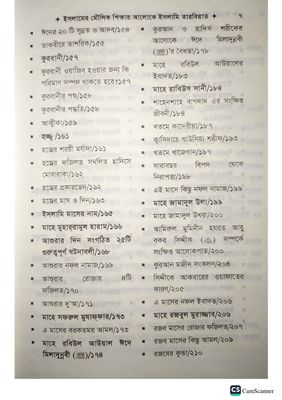 ✦ ইসলামের মৌলিক শিক্ষার আলোকে ইসলামি তারবিয়াত ✦ ৭
● ঈদের ২০ টি সুন্নত ও আদব/১৫৪
● তাকবীরে তাশরিক/১৫৫
● কুরবানী/১৫৭
● কুরবানী ওয়াজিব হওয়ার জন্য কি
পরিমাণ সম্পদ থাকতে হবে?১৫৭
● কুরবানীর পশু/১৫৮
● কুরবানীর পদ্ধতি/১৫৮
● আক্বীকা/১৫৯
● হজ্জ্ব/ ১৬১
● হজ্বের শরয়ী মর্যাদা/১৬১
● হজ্বের ফজিলত সম্বলিত হাদিসে
মোবারাকা/১৬২
● হজ্বের প্রকারভেদ/১৬২
● হজ্বের মাস ও দিন/১৬৩
● ইসলামি মাসের নাম/১৬৫
● মাহে মুহাররামুল হারাম/১৬৬
● আশুরার দিন সংগঠিত ২৫টি
গুরুত্বপূর্ণ ঘটনাবলী/১৬৮
● আশুরার নফল নামাজ/১৬৯
● আশুরার রোজার ৪টি
ফজিলত/১৭০
● আশুরার দু'আ/১৭১
● মাহে সফরুল মুযাফ্ফার/১৭৩
● এ মাসের বরকতময় আমল/১৭৩
● মাহে রবিউল আউয়াল ঈদে
মিলাদুন্নবী (ﷺ)/১৭৪
● কুরআন ও হাদিস শরীফের
আলোকে ঈদে মিলাদুন্নবী
(ﷺ)'র বৈধতা/১৭৮
● মাহে রবিউল আউয়ালের
ইবাদত/১৮৩
● মাহে রাবিউস সানী/১৮৪
● শাহেনশাহে বাগদাদ এর সংক্ষিপ্ত
জীবনী/১৮৪
● খতমে কাদেরীয়া/১৮৭
● ক্বাসিদায়ে গাউসিয়া শরীফ/১৯৩
● খতমে খাজেগান/১৯৭
● সারাবছর বিপদ থেকে
নিরাপত্তা/১৯৮
● এই মাসে কিছু নফল নামাজ/১৯৯
● মাহে জামাদুল উলা/১৯৯
● মাহে জামাদুল উখরা/২০০
● আমিরুল মুমিনীন হযরত আবু
বকর সিদ্দীক সম্পর্কে
সংক্ষিপ্ত আলোকপাত/২০০
● কুরআন মজীদ সংকলন/২০৪
● সিদ্দীকে আকবারের ওয়াফাতের
কারণ/২০৫
● এ মাসের নফল ইবাদত/২০৬
● মাহে রজবুল মুরাজ্জাব/২০৬
● রজব মাসের রোজার ফজিলত/২০৭
● রজব মাসের কিছু আমল/২০৮
● রজবের কুন্ডা/২১০
CS CamScanner